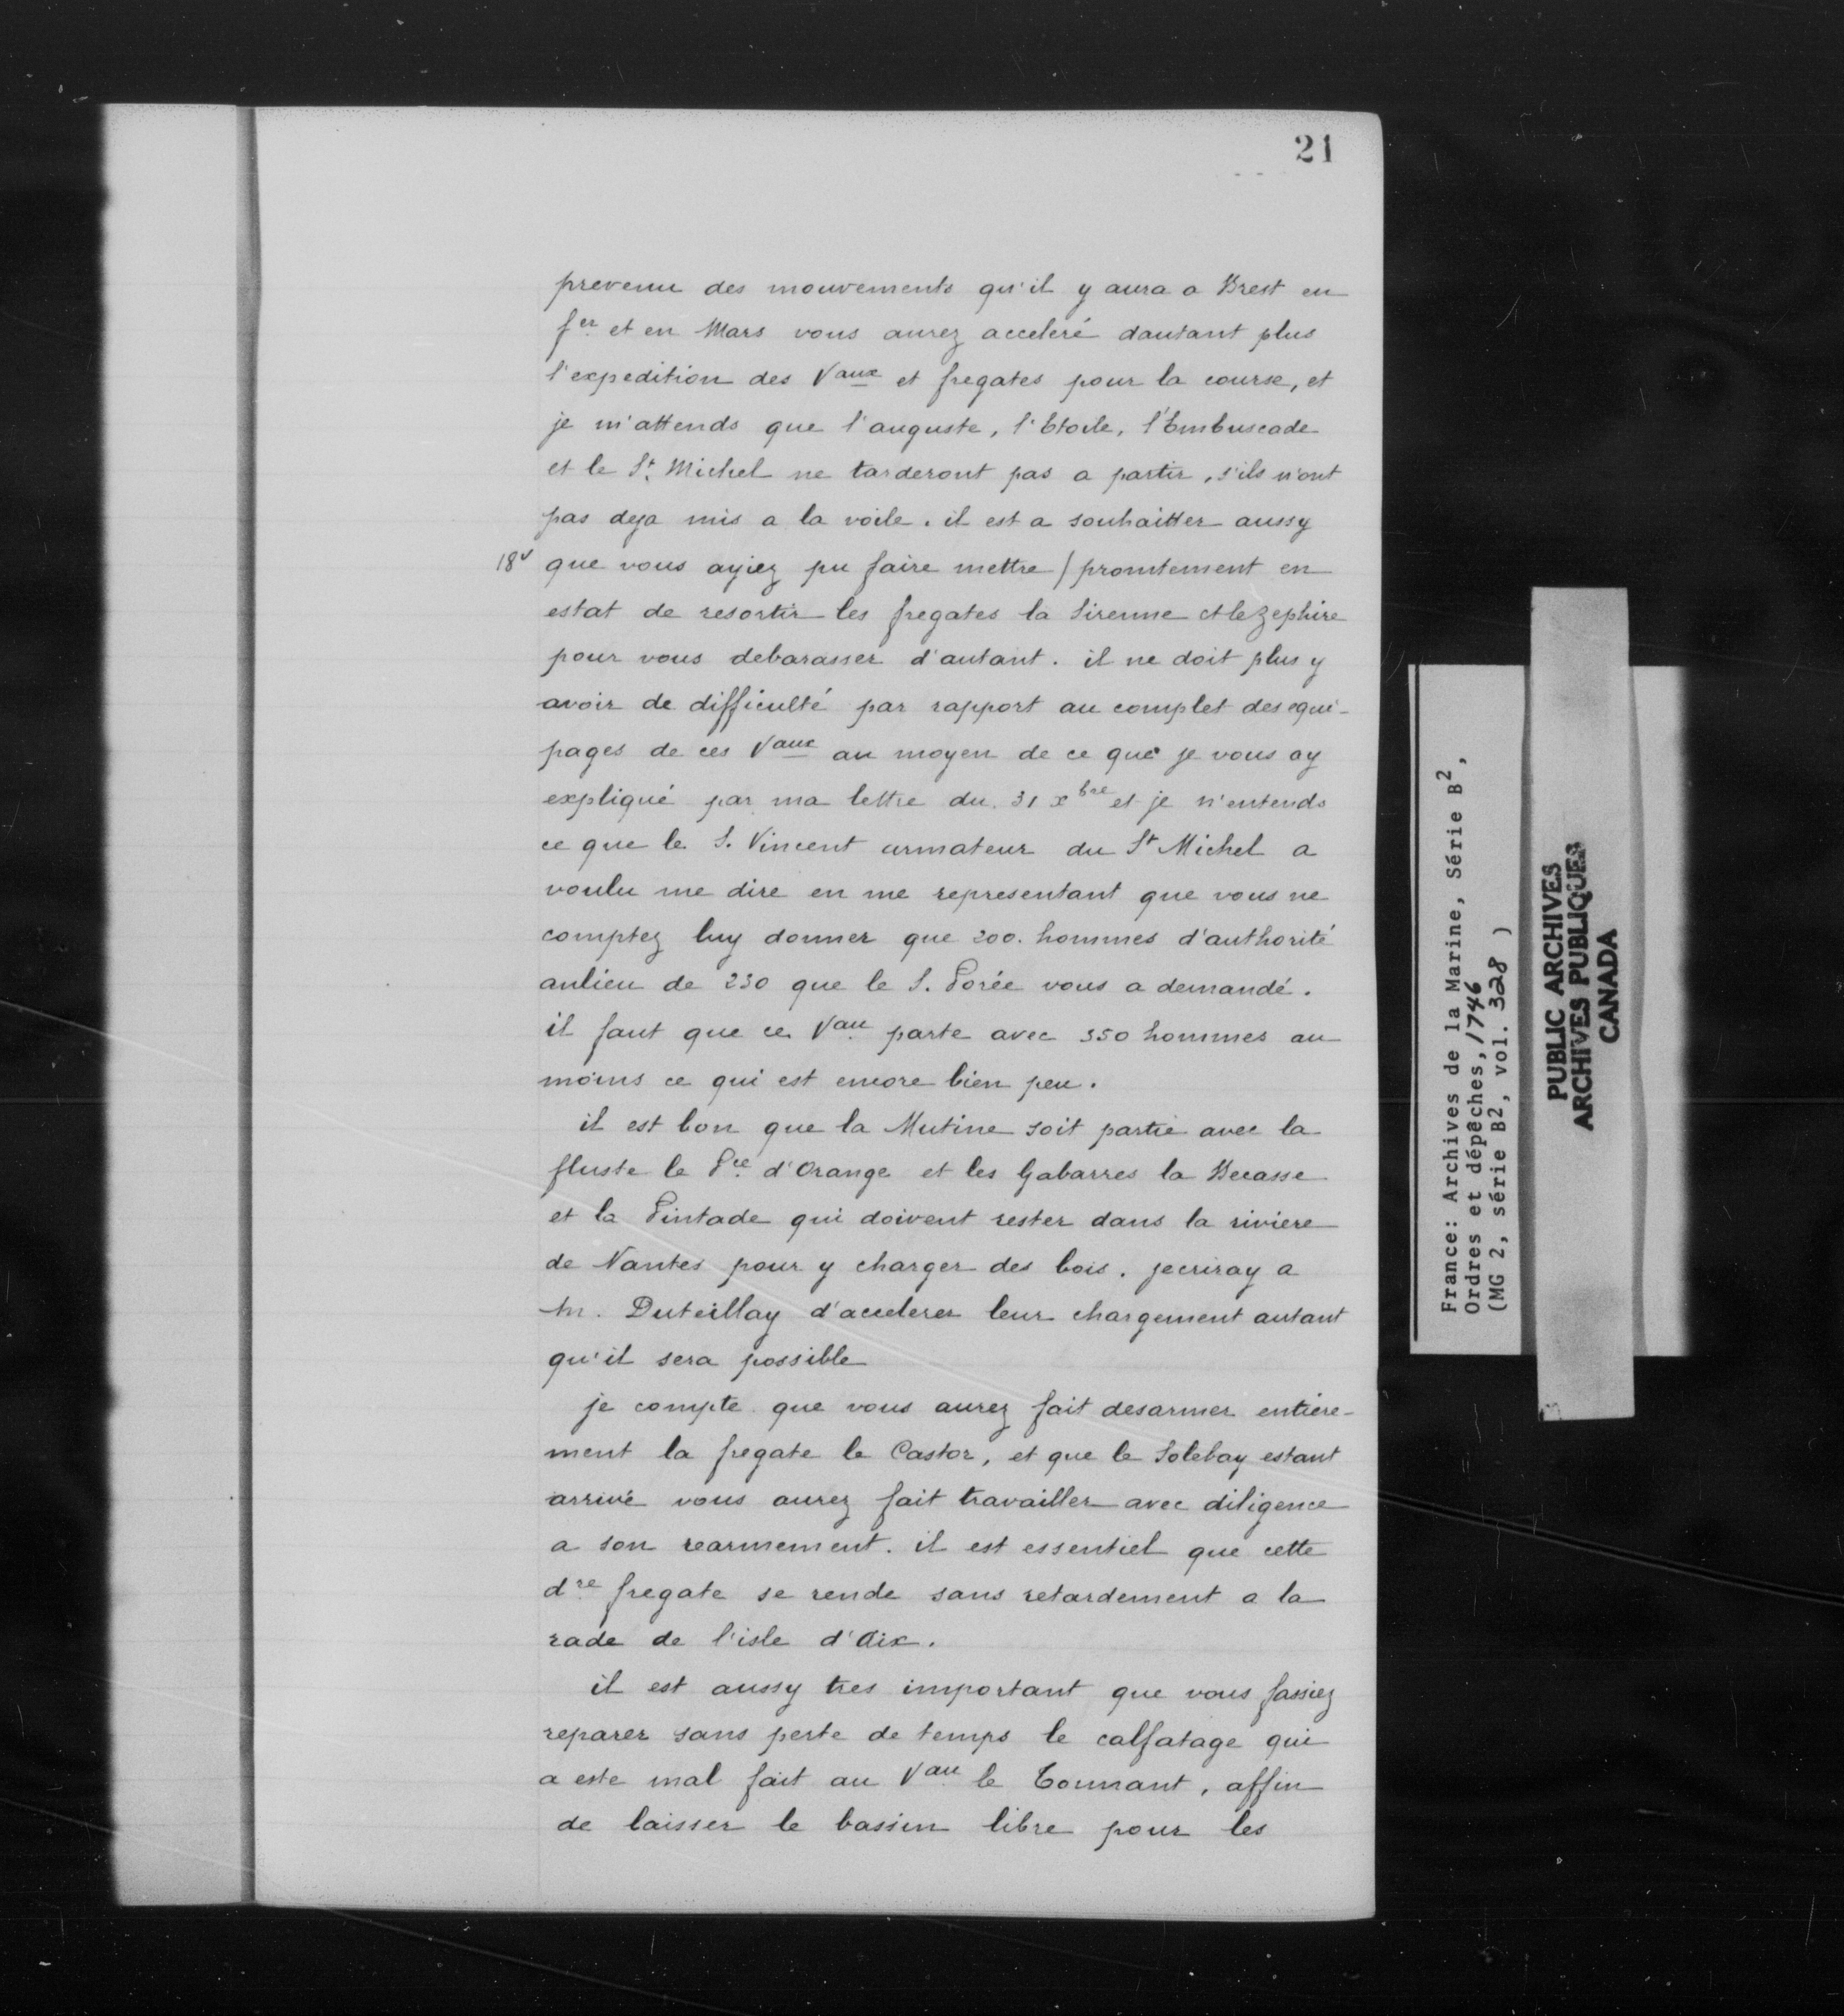 21
prevenu des mouvements qu'il y aura a Brest en
f.er et en Mars vous aurez acceleré dautant plus
l'expedition des Vaux et fregates pour la course, et
je m'attends que l'auguste, l'Etoile, l'Embuscade
et le St. Michel ne tarderont pas a partir, s'ils n'ont
pas deja mis a la voile. il est a souhaitter aussy
18v que vous ayiez pu faire mettre / promtement en
estat de resortir les fregates la Sirenne et le Zephire
pour vous debarasser d'autant. il ne doit plus y
avoir de difficulté par rapport au complet des equi-
pages de ces Vaux au moyen de ce que je vous ay
expliqué par ma lettre du 31 xbre et je n'entends
ce que le S. Vincent armateur du St Michel a
voulu me dire en me representant que vous ne
comptez luy donner que 200. hommes d'authorité
aulieu de 230 que le S. Porée vous a demandé.
il faut que ce Vau parte avec 350 hommes au
moins ce qui est encore bien peu.
il est bon que la Mutine soit partie avec la
fluste le P.ce d'Orange et les Gabarres la Becasse
et la Pintade qui doivent rester dans la riviere
de Nantes pour y charger des bois. jecriray a
M. Duteillay d'accelerer leur chargement autant
qu'il sera possible
je compte que vous aurez fait desarmer entiere-
ment la fregate le Castor, et que le Solebay estant
arrivé vous aurez fait travailler avec diligence
a son rearmement. il est essentiel que cette
d.re fregate se rende sans retardement a la
rade de l'isle d'Aix.
il est aussy tres important que vous fassiez
reparer sans perte de temps le calfatage qui
a este mal fait au Vau le Tonnant, affin
de laisser le bassin libre pour les
France: Archives de la Marine, Série B2,
Ordres et dépêches, 1746
(MG 2, série B2, vol. 328 )
PUBLIC ARCHIVES
ARCHIVES PUBLIQUES
CANADA